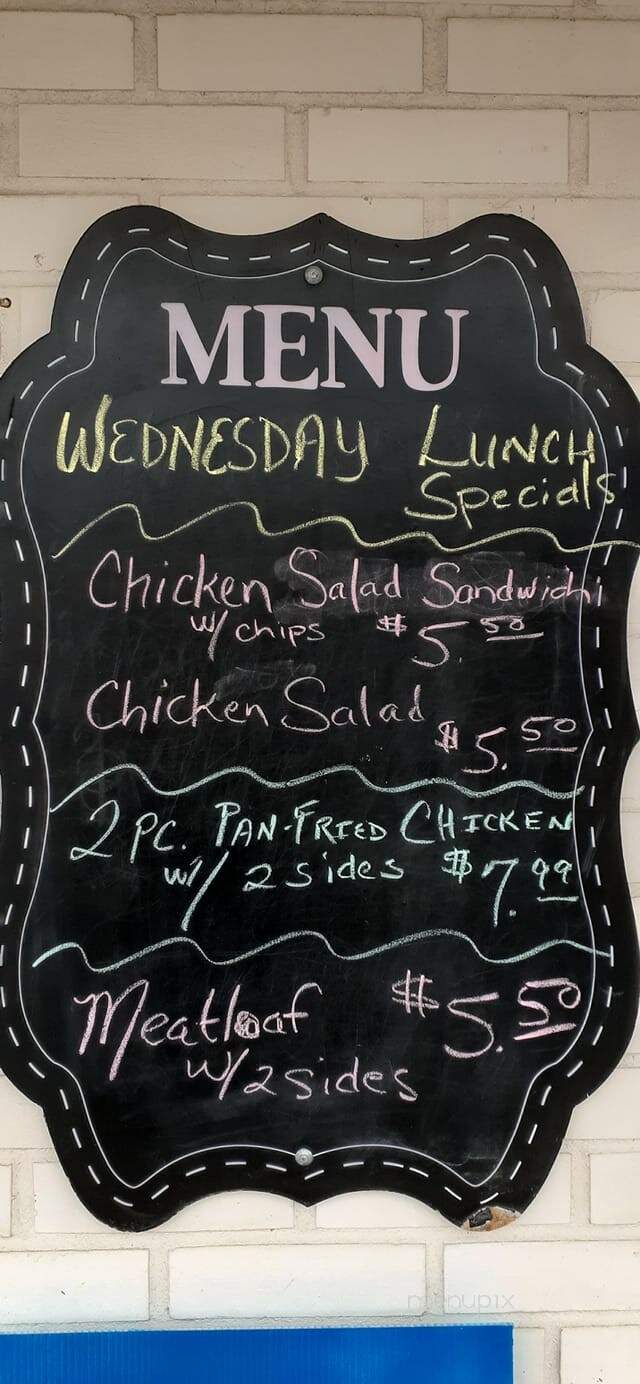 MENU
WEDNESDAY LUNCH
Specials
Chicken Salad Sandwich
w/ chips $5.50
Chicken Salad
$5.50
2 PC. PAN-FRIED CHICKEN
w/ 2 sides $7.99
Meatloaf $5.50
w/ 2 sides
menupix